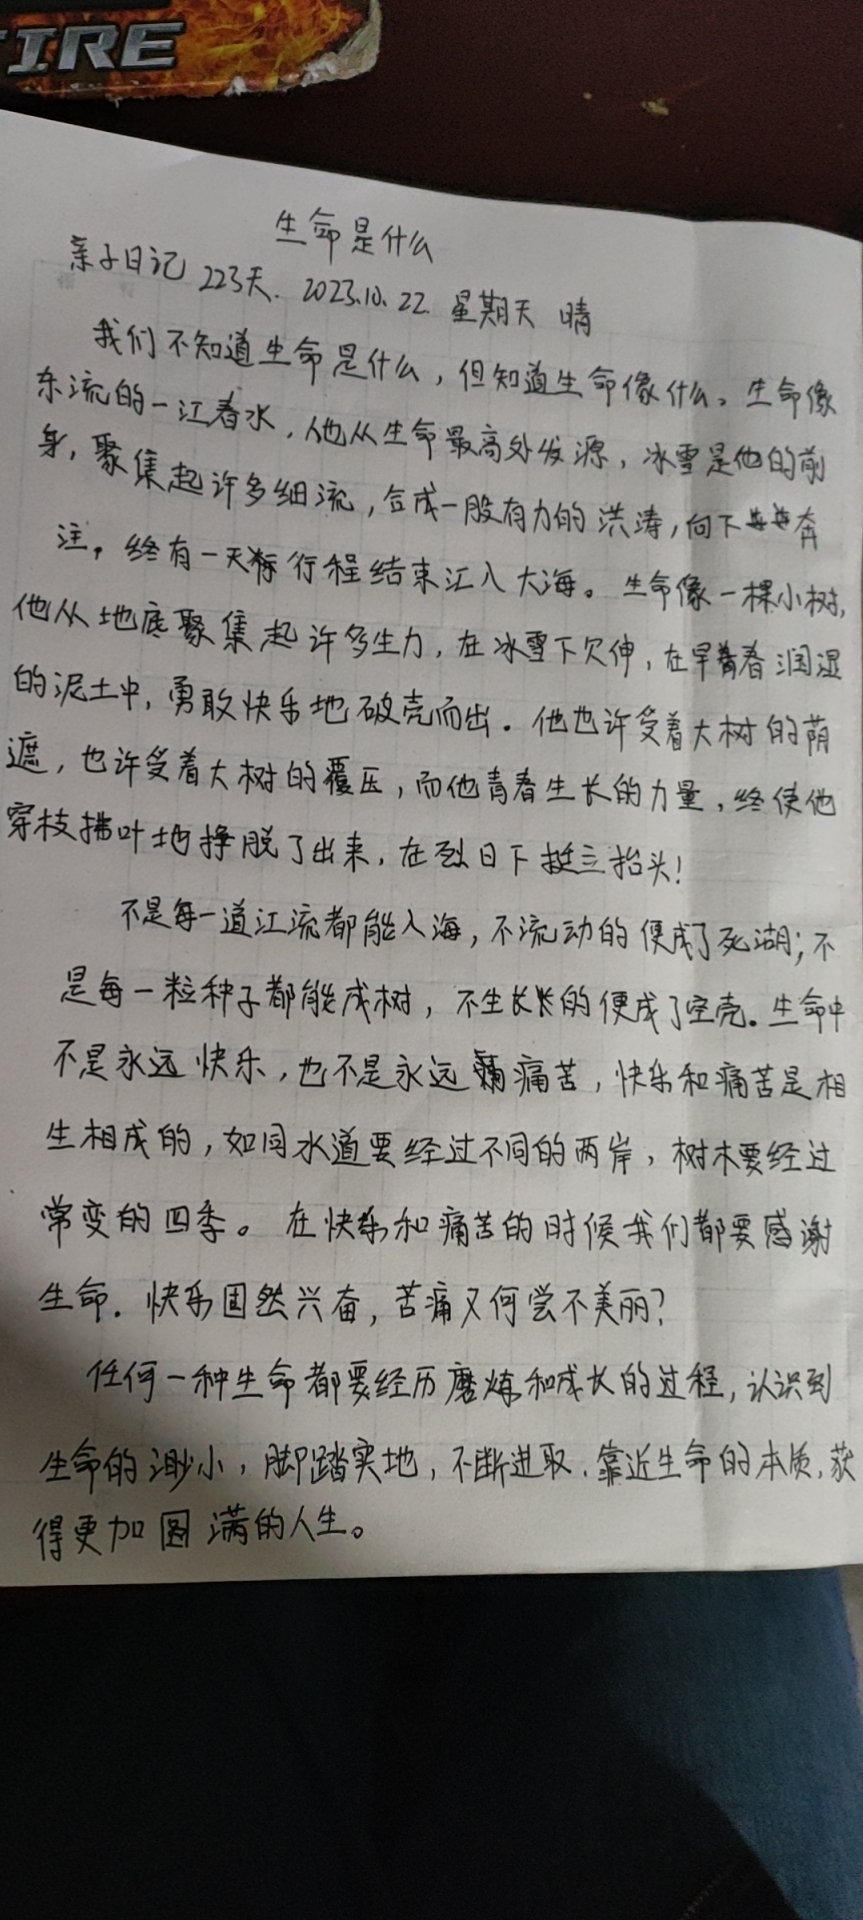 TIRE
生命是什么
亲子日记 223天. 2023.10.22. 星期天 晴
我们不知道生命是什么，但知道生命像什么。生命像
东流的一江春水，他从生命最高处发源，冰雪是他的前
身，聚集起许多细流，合成一股有力的洪涛，向下奔
注，终有一天行程结束汇入大海。生命像一棵小树，
他从地底聚集起许多生力，在冰雪下欠伸，在早春润湿
的泥土中，勇敢快乐地破壳而出。他也许受着大树的荫
遮，也许受着大树的覆压，而他青春生长的力量，终使他
穿枝拂叶地挣脱了出来，在烈日下挺立抬头！
不是每一道江流都能入海，不流动的便成了死湖；不
是每一粒种子都能成树，不生长的便成了空壳。生命中
不是永远快乐，也不是永远痛苦，快乐和痛苦是相
生相成的，如同水道要经过不同的两岸，树木要经过
常变的四季。在快乐和痛苦的时候我们都要感谢
生命．快乐固然兴奋，苦痛又何尝不美丽？
任何一种生命都要经历磨炼和成长的过程，认识到
生命的渺小，脚踏实地，不断进取．靠近生命的本质，获
得更加圆满的人生。